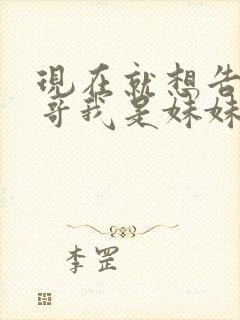 現在就想告
哥我是妹妹
李罡